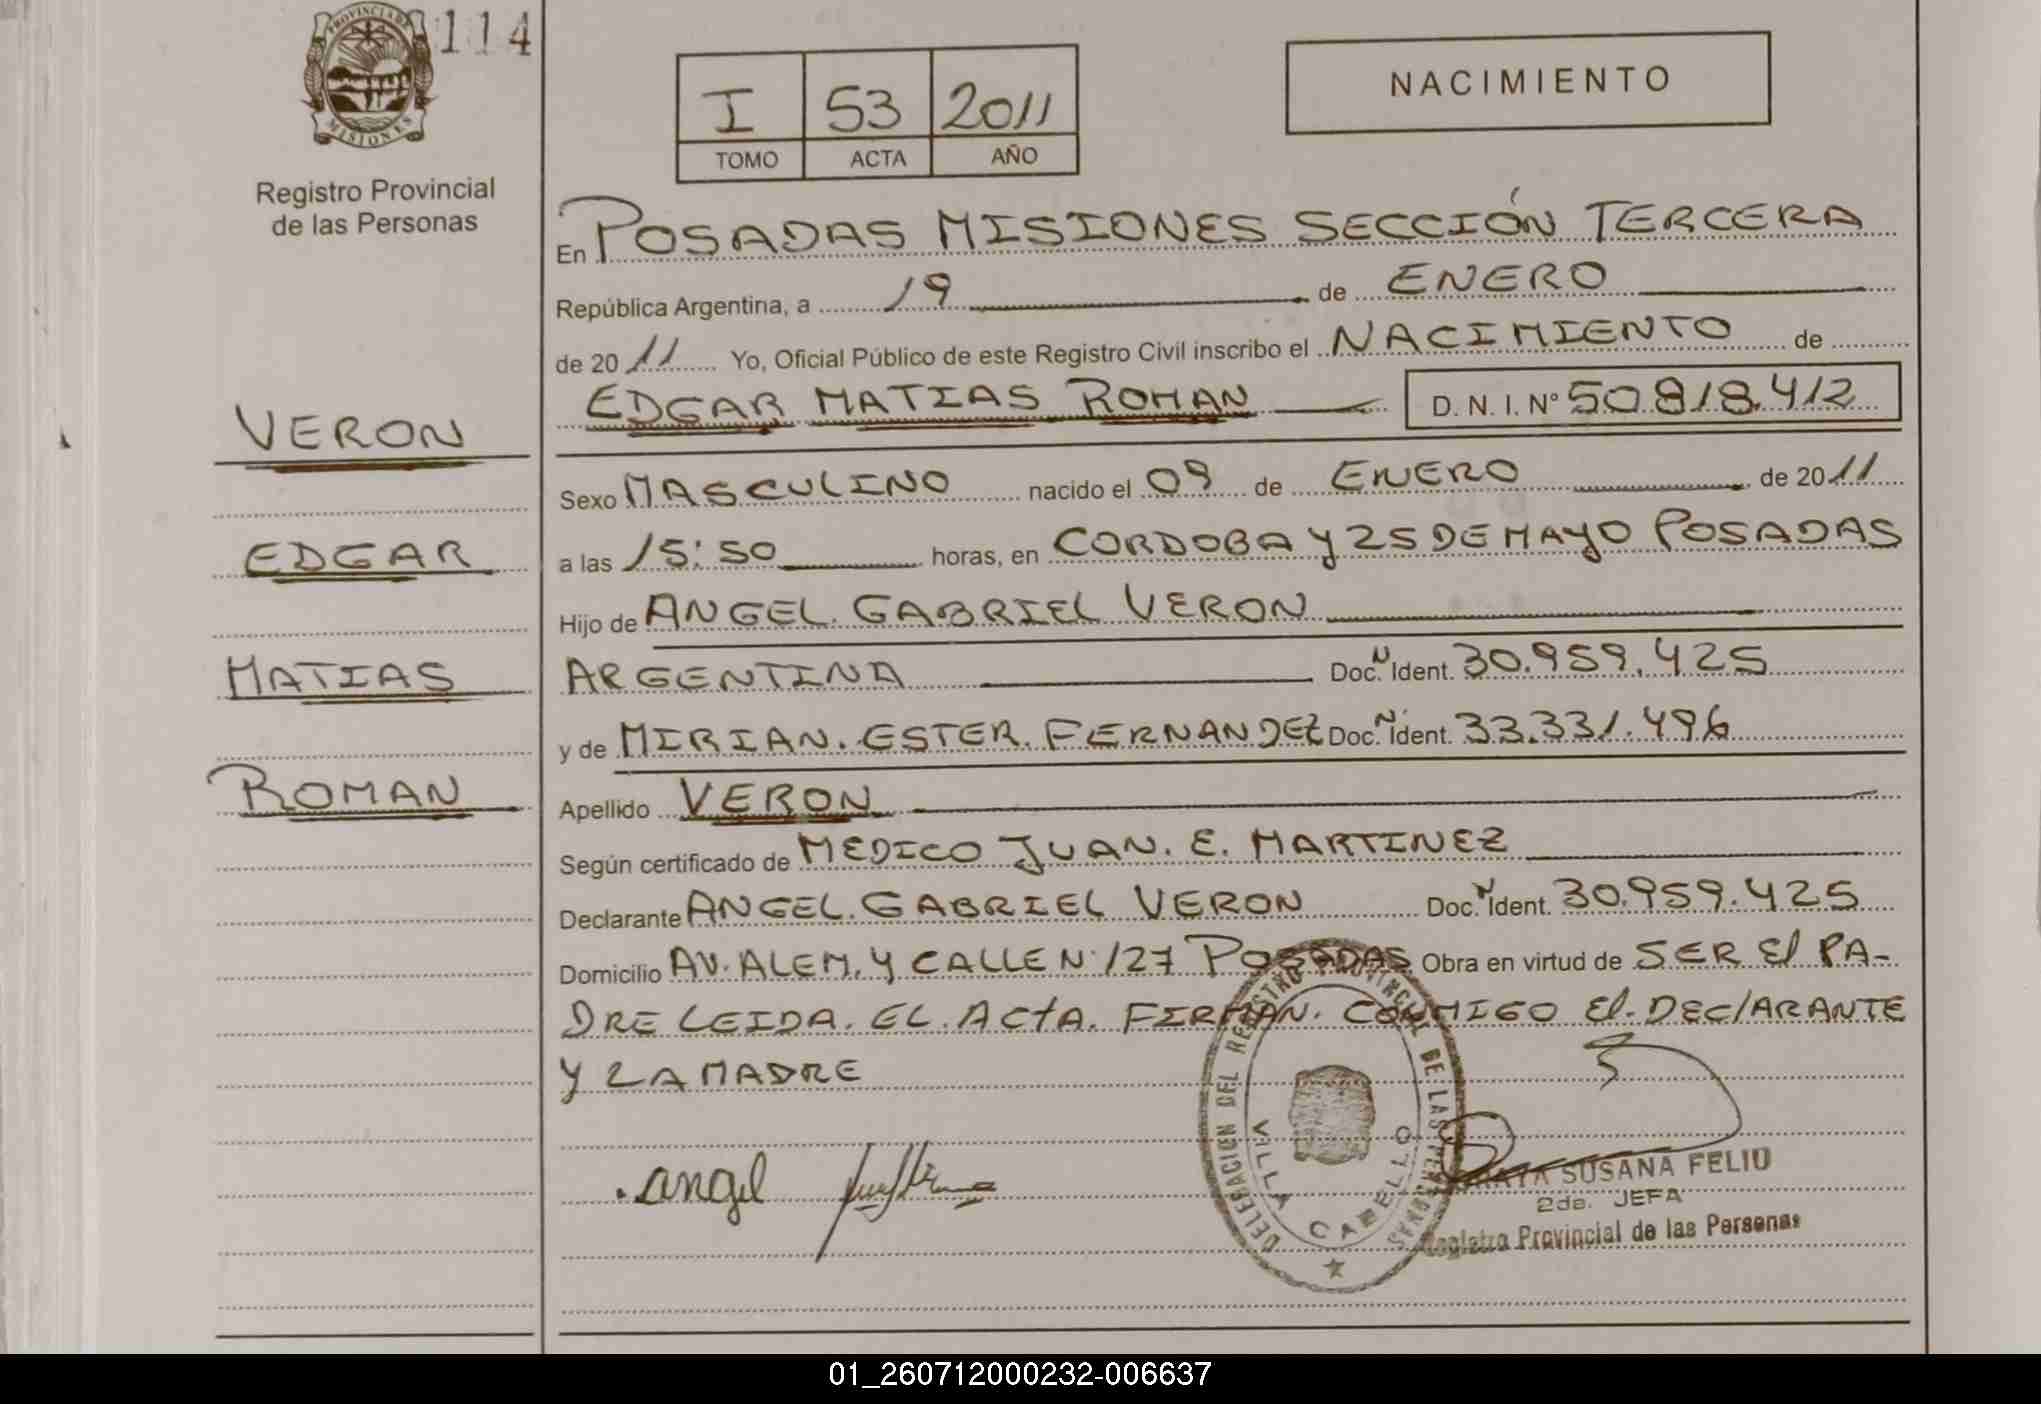 PROVINCIA DE
MISIONES
114
Registro Provincial
de las Personas
I 53 2011
TOMO ACTA AÑO
NACIMIENTO
En POSADAS MISIONES SECCIÓN TERCERA
República Argentina, a 19 de ENERO
de 2011 Yo, Oficial Público de este Registro Civil inscribo el NACIMIENTO de
EDGAR MATIAS ROMAN D. N. I. Nº 50.818.412
VERON
EDGAR
MATIAS
ROMAN
Sexo MASCULINO nacido el 09 de ENERO de 2011
a las 15:50 horas, en CORDOBA Y 25 DE MAYO POSADAS
Hijo de ANGEL. GABRIEL VERON
ARGENTINA Doc. N Ident. 30.959.425
y de MIRIAN. ESTER. FERNANDEZ Doc. N Ident. 33.331.496
Apellido VERON
Según certificado de MEDICO JUAN. E. MARTINEZ
Declarante ANGEL. GABRIEL VERON Doc. N Ident. 30.959.425
Domicilio AV. ALEM. Y CALLE N· 127 POSADAS Obra en virtud de SER El PA-
DRE LEIDA. EL. ACtA. FIRMAN. CONMIGO El. DEClARANTE
Y LA MADRE
angel
DELEGACION DEL REGISTRO PROVINCIAL DE LAS PERSONAS
VILLA CABELLO
SUSANA FELIU
2da. JEFA
Registro Provincial de las Personas
01_260712000232-006637